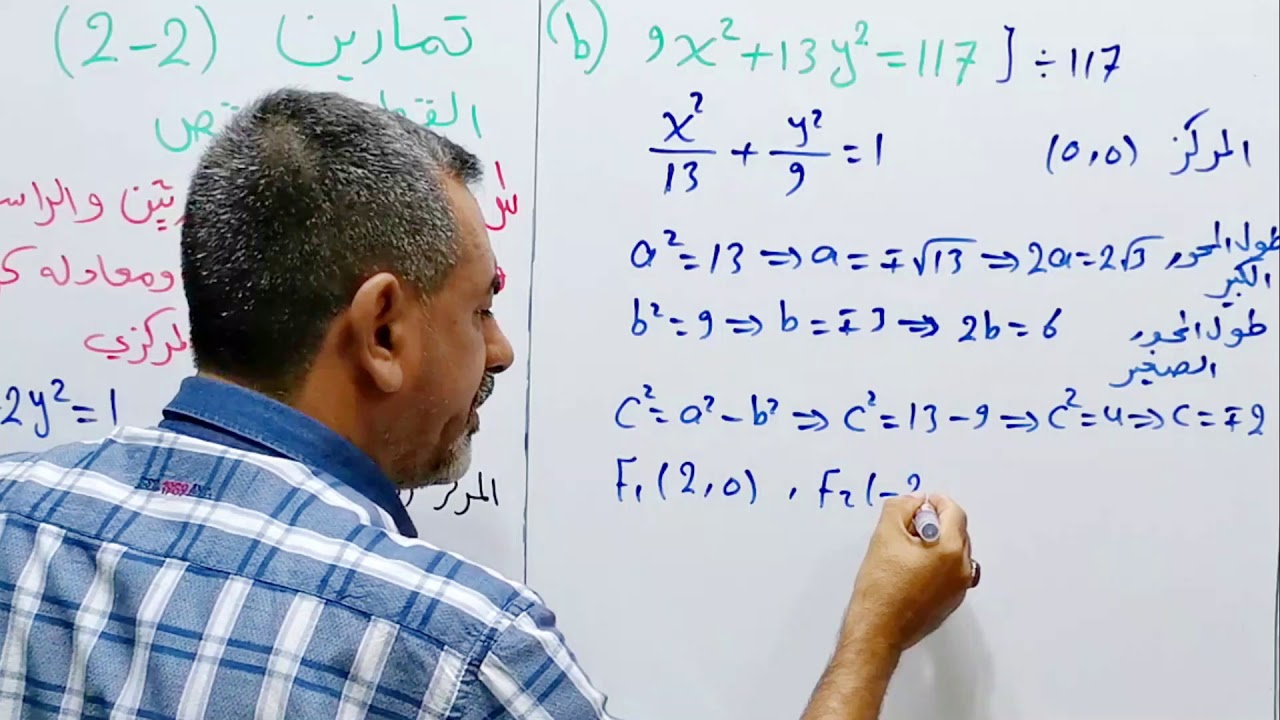 تمارين (2-2)
والراس
ومعادله
2y² = 1
المركز
(b) 9x² + 13y² = 117 ] ÷ 117
x²/13 + y²/9 = 1 المركز (0,0)
a² = 13 ⇒ a = ∓√13 ⇒ 2a = 2√3 طول المحور الكبير
b² = 9 ⇒ b = ∓3 ⇒ 2b = 6 طول المحور الصغير
c² = a² - b² ⇒ c² = 13 - 9 ⇒ c² = 4 ⇒ c = ∓2
F₁ (2,0) , F₂ (-2